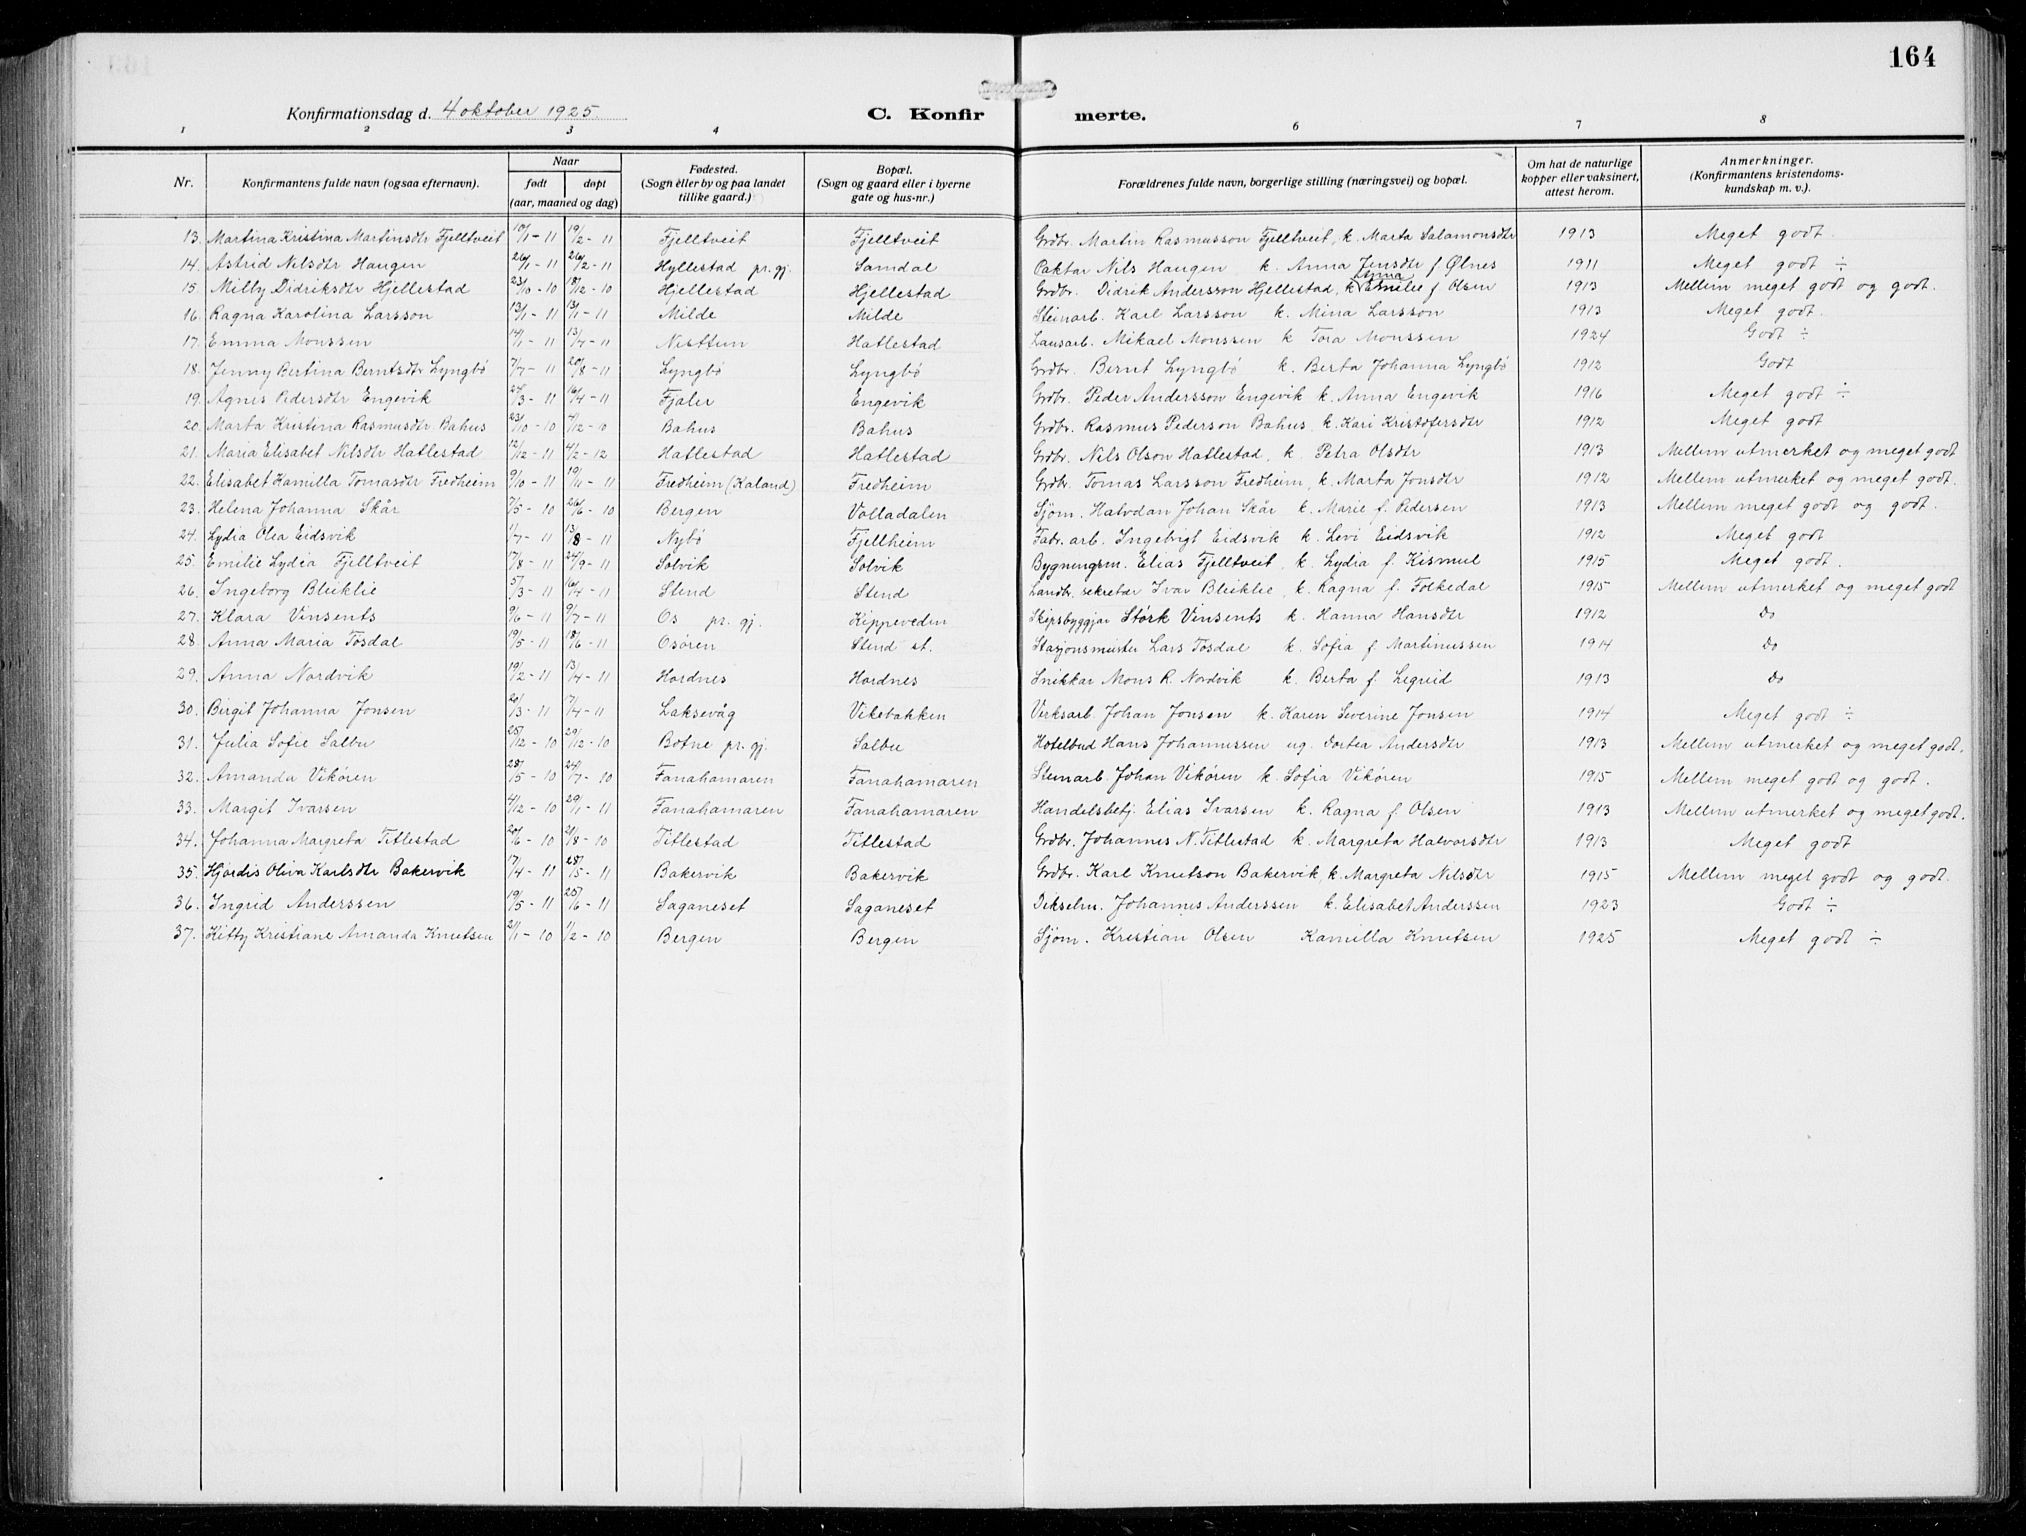 164
Konfirmationsdag d. 4 oktober 1925. C. Konfirmerte.
1 2 3 4 6 7 8
Nr. Konfirmantens fulde navn (ogsaa efternavn). Naar født døpt (aar, maaned og dag) Fødested. (Sogn eller by og paa landet tillike gaard.) Bopæl. (Sogn og gaard eller i byerne gate og hus-nr.) Forældrenes fulde navn, borgerlige stilling (næringsvei) og bopæl. Om hat de naturlige kopper eller vaksinert, attest herom. Anmerkninger. (Konfirmantens kristendomskundskap m. v.).
13. Martina Kristina Martinsdtr Fjelltveit 10/1 - 11 19/2 - 11 Fjelltveit Fjelltveit Grdbr. Martin Rasmusson Fjelltveit, k. Marta Salamonsdtr 1913 Meget godt.
14. Astrid Nilsdtr Haugen 26/1 - 11 26/2 - 11 Hyllestad pr. gj. Samdal Nils Haugen k. Anna Jensdtr f Ølnes 1911 Meget godt ÷
15. Milly Didriksdtr Hjellestad 23/10 - 10 18/12 - 10 Hjellestad Hjellestad Grdbr. Didrik Andersson Hjellestad, k. Anna Emilie f Olsen 1913 Mellem meget godt og godt.
16. Ragna Karolina Larsson 13/1 - 11 13/1 - 11 Milde Milde Steinarb. Karl Larsson k. Mina Larsson 1913 Meget godt.
17. Emma Monssen 14/1 - 11 13/7 - 11 Nesttun Hatlestad Lausarb. Mikael Monssen k Tora Monssen 1924 Godt ÷
18. Jenny Bertina Berntsdtr Lyngbø 7/7 - 11 20/8 - 11 Lyngbø Lyngbø Grdbr. Bernt Lyngbø k. Berta Johanna Lyngbø 1912 Godt
19. Agnes Pedersdtr Engevik 24/3 - 11 16/4 - 11 Fjaler Engevik Grdbr. Peder Andersson Engevik k. Anna Engevik 1916 Meget godt ÷
20. Marta Kristina Rasmusdtr Bahus 23/10 - 10 4/12 - 10 Bahus Bahus Grdbr. Rasmus Pederson Bahus, k. Kari Kristofersdtr 1912 Meget godt
21. Maria Elisabet Nilsdtr Hatlestad 12/12 - 11 4/2 - 12 Hatlestad Hatlestad Grdbr. Nils Olson Hatlestad, k. Petra Olsdtr 1913 Mellem utmerket og meget godt
22. Elisabet Kamilla Tomasdtr Fredheim 9/10 - 11 19/11 - 11 Fredheim (Kaland) Fredheim Grdbr. Tomas Larsson Fredheim, k. Marta Jonsdtr 1912 Mellem utmerket og meget godt.
23. Helena Johanna Skår 7/5 - 10 26/6 - 10 Bergen Valladalen Sjøm. Halvdan Johan Skår k. Marie f. Pedersen 1913 Mellem meget godt og godt.
24. Lydia Olea Eidsvik 1/7 - 11 13/8 - 11 Nybø Fjellheim Fabr. arb. Ingebrigt Eidsvik k. Levi Eidsvik 1912 Meget godt
25. Emilie Lydia Fjelltveit 17/8 - 11 24/9 - 11 Solvik Solvik Bygningsm. Elias Fjelltveit, k. Lydia f. Kismul 1915 Meget godt.
26. Ingeborg Bleiklie 5/3 - 11 16/4 - 11 Stend Stend Landbr. sekretær Ivar Bleiklie, k. Ragna f. Folkedal 1915 Mellem utmerket og meget godt
27. Klara Vinsents 9/6 - 11 9/7 - 11 Os pr. gj. Kippeveden Skipsbyggjar Størk Vinsents k. Hanna Hansdtr 1912 Do
28. Anna Maria Tøsdal 19/5 - 11 18/6 - 11 Osøren Stend st. Stasjonsmeister Lars Tøsdal k. Sofia f Martinussen 1914 Do
29. Anna Nordvik 19/2 - 11 13/4 - 11 Hordnes Hordnes Snikkar Mons R. Nordvik k. Berta f. Legreid 1913 Do
30. Birgit Johanna Jonsen 20/3 - 11 17/4 - 11 Laksevåg Vikebakken Verksarb. Johan Jonsen k. Karen Severine Jonsen 1914 Meget godt ÷
31. Julia Sofie Salbu 25/12 - 10 29/12 - 10 Botne pr. gj. Salbu Hotelbud Hans Johannessen ug. Dortea Andersdtr 1913 Mellem utmerket og meget godt.
32. Amanda Vikøren 28/5 - 10 24/7 - 10 Fanahamaren Fanahamaren Steinarb. Johan Vikøren k. Sofia Vikøren 1915 Mellem meget godt og godt.
33. Margit Ivarsen 4/12 - 10 29/1 - 11 Fanahamaren Fanahamaren Handelsbetj. Elias Ivarsen k. Ragna f. Olsen 1913 Mellem utmerket og meget godt.
34. Johanna Margreta Titlestad 20/6 - 10 21/8 - 10 Titlestad Titlestad Grdbr. Johannes N. Titlestad k. Margreta Halvorsdtr 1913 Meget godt
35. Hjørdis Oliva Karlsdtr Bakervik 17/4 - 11 28/5 - 11 Bakervik Bakervik Grdbr. Karl Knutson Bakervik, k. Margreta Nilsdtr 1915 Mellem meget godt og godt.
36. Ingrid Anderssen 19/5 - 11 25/6 - 11 Saganeset Saganeset Dikselm. Johannes Anderssen k. Elisabet Anderssen 1923 Godt ÷
37. Kitty Kristiane Amanda Knutsen 21/1 - 10 1/2 - 10 Bergen Bergen Sjøm. Kristian Olsen Kamilla Knutsen 1925 Meget godt ÷